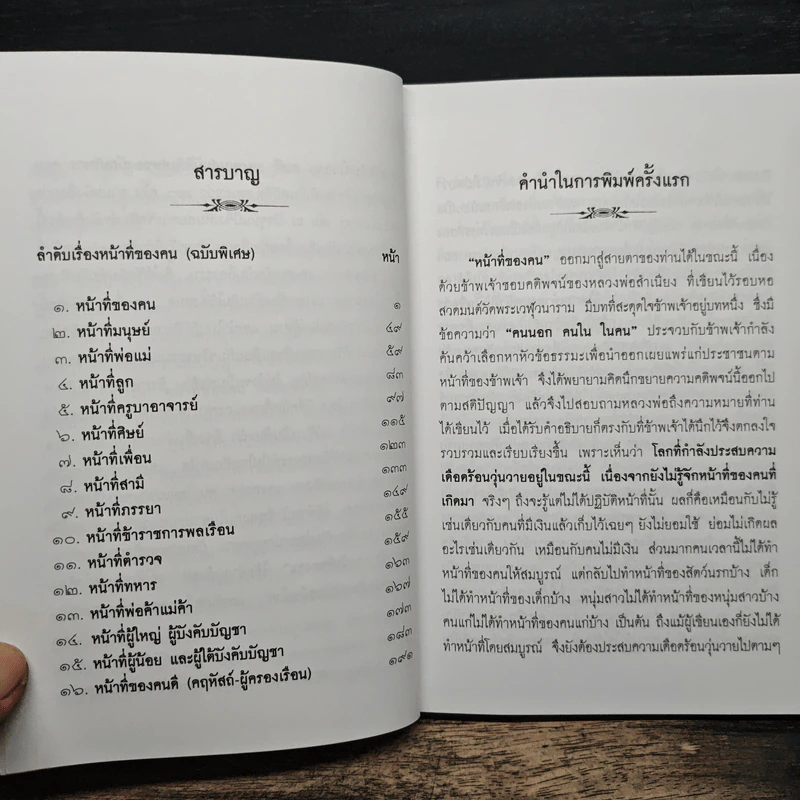 สารบาญ
ลำดับเรื่องหน้าที่ของคน (ฉบับพิเศษ) หน้า
๑. หน้าที่ของคน ๑
๒. หน้าที่มนุษย์ ๔๙
๓. หน้าที่พ่อแม่ ๕๙
๔. หน้าที่ลูก ๘๓
๕. หน้าที่ครูบาอาจารย์ ๙๗
๖. หน้าที่ศิษย์ ๑๑๕
๗. หน้าที่เพื่อน ๑๒๓
๘. หน้าที่สามี ๑๓๓
๙. หน้าที่ภรรยา ๑๔๙
๑๐. หน้าที่ข้าราชการพลเรือน ๑๕๕
๑๑. หน้าที่ตำรวจ ๑๕๙
๑๒. หน้าที่ทหาร ๑๖๓
๑๓. หน้าที่พ่อค้าแม่ค้า ๑๖๗
๑๔. หน้าที่ผู้ใหญ่ ผู้บังคับบัญชา ๑๗๓
๑๕. หน้าที่ผู้น้อย และผู้ใต้บังคับบัญชา ๑๘๓
๑๖. หน้าที่ของคนดี (คฤหัสถ์-ผู้ครองเรือน) ๑๙๑
คำนำในการพิมพ์ครั้งแรก
“หน้าที่ของคน” ออกมาสู่สายตาของท่านได้ในขณะนี้ เนื่อง
ด้วยข้าพเจ้าชอบคติพจน์ของหลวงพ่อสำเนียง ที่เขียนไว้รอบหอ
สวดมนต์วัดพระเวฬุวนาราม มีบทที่สะดุดใจข้าพเจ้าอยู่บทหนึ่ง ซึ่งมี
ข้อความว่า “คนนอก คนใน ในคน” ประจวบกับข้าพเจ้ากำลัง
ค้นคว้าเลือกหาหัวข้อธรรมะเพื่อนำออกเผยแพร่แก่ประชาชนตาม
หน้าที่ของข้าพเจ้า จึงได้พยายามคิดนึกขยายความคติพจน์นี้ออกไป
ตามสติปัญญา แล้วจึงไปสอบถามหลวงพ่อถึงความหมายที่ท่าน
ได้เขียนไว้ เมื่อได้รับคำอธิบายก็ตรงกับที่ข้าพเจ้าได้นึกไว้จึงตกลงใจ
รวบรวมและเรียบเรียงขึ้น เพราะเห็นว่า โลกที่กำลังประสบความ
เดือดร้อนวุ่นวายอยู่ในขณะนี้ เนื่องจากยังไม่รู้จักหน้าที่ของคนที่
เกิดมา จริงๆ ถึงจะรู้แต่ไม่ได้ปฏิบัติหน้าที่นั้น ผลก็คือเหมือนกับไม่รู้
เช่นเดียวกับคนที่มีเงินแล้วเก็บไว้เฉยๆ ยังไม่ยอมใช้ ย่อมไม่เกิดผล
อะไรเช่นเดียวกัน เหมือนกับคนไม่มีเงิน ส่วนมากคนเวลานี้ไม่ได้ทำ
หน้าที่ของคนให้สมบูรณ์ แต่กลับไปทำหน้าที่ของสัตว์นรกบ้าง เด็ก
ไม่ได้ทำหน้าที่ของเด็กบ้าง หนุ่มสาวไม่ได้ทำหน้าที่ของหนุ่มสาวบ้าง
คนแก่ไม่ได้ทำหน้าที่ของคนแก่บ้าง เป็นต้น ถึงแม้ผู้เขียนเองก็ยังไม่ได้
ทำหน้าที่โดยสมบูรณ์ จึงยังต้องประสบความเดือดร้อนวุ่นวายไปตามๆ